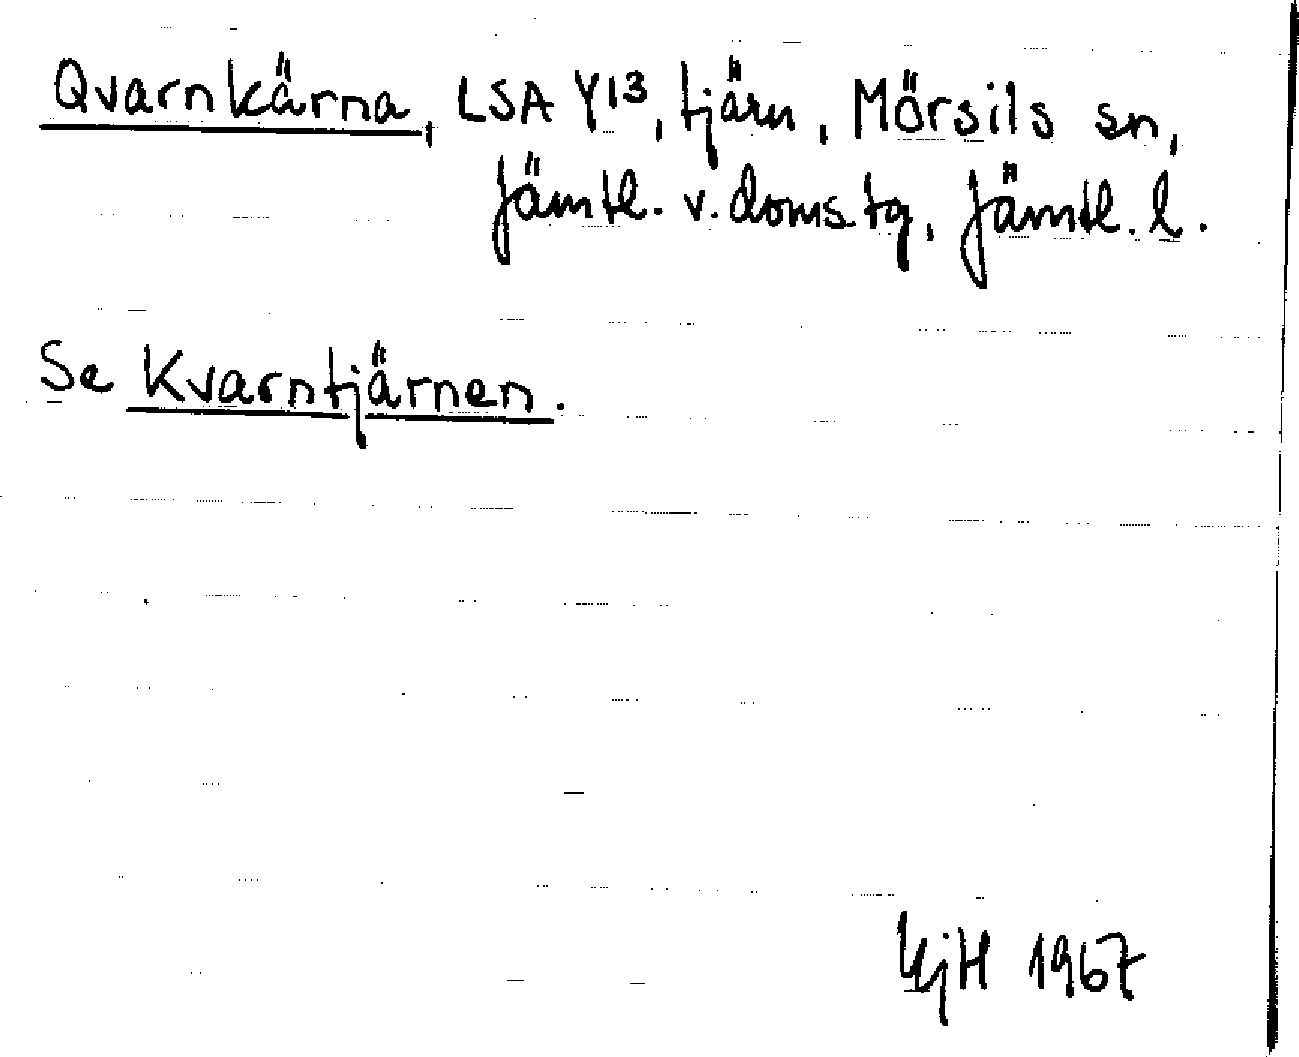 Qvarnkärna, LSA Y13, tjärn, Mörsils sn,
Jämtl. v. doms.tg, Jämtl. l.
Se Kvarntjärnen.
KjH 1967